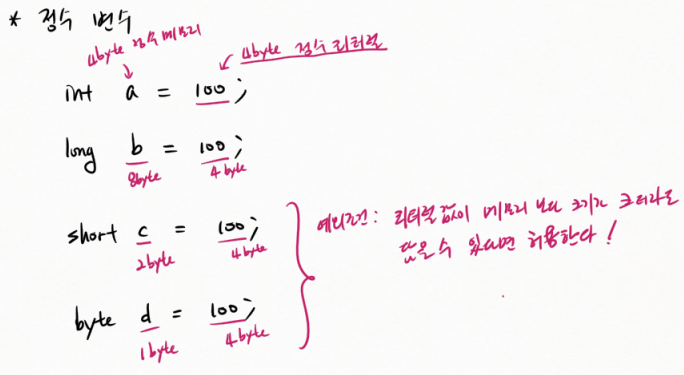 * 정수 변수
4byte 정수 메모리
4byte 정수 리터럴
int a = 100;
long b = 100;
8byte 4byte
예외조건: 리터럴 값이 메모리 보다 크기가 크더라도
short c = 100;
담을 수 있다면 허용한다!
2byte 4byte
byte d = 100;
1byte 4byte